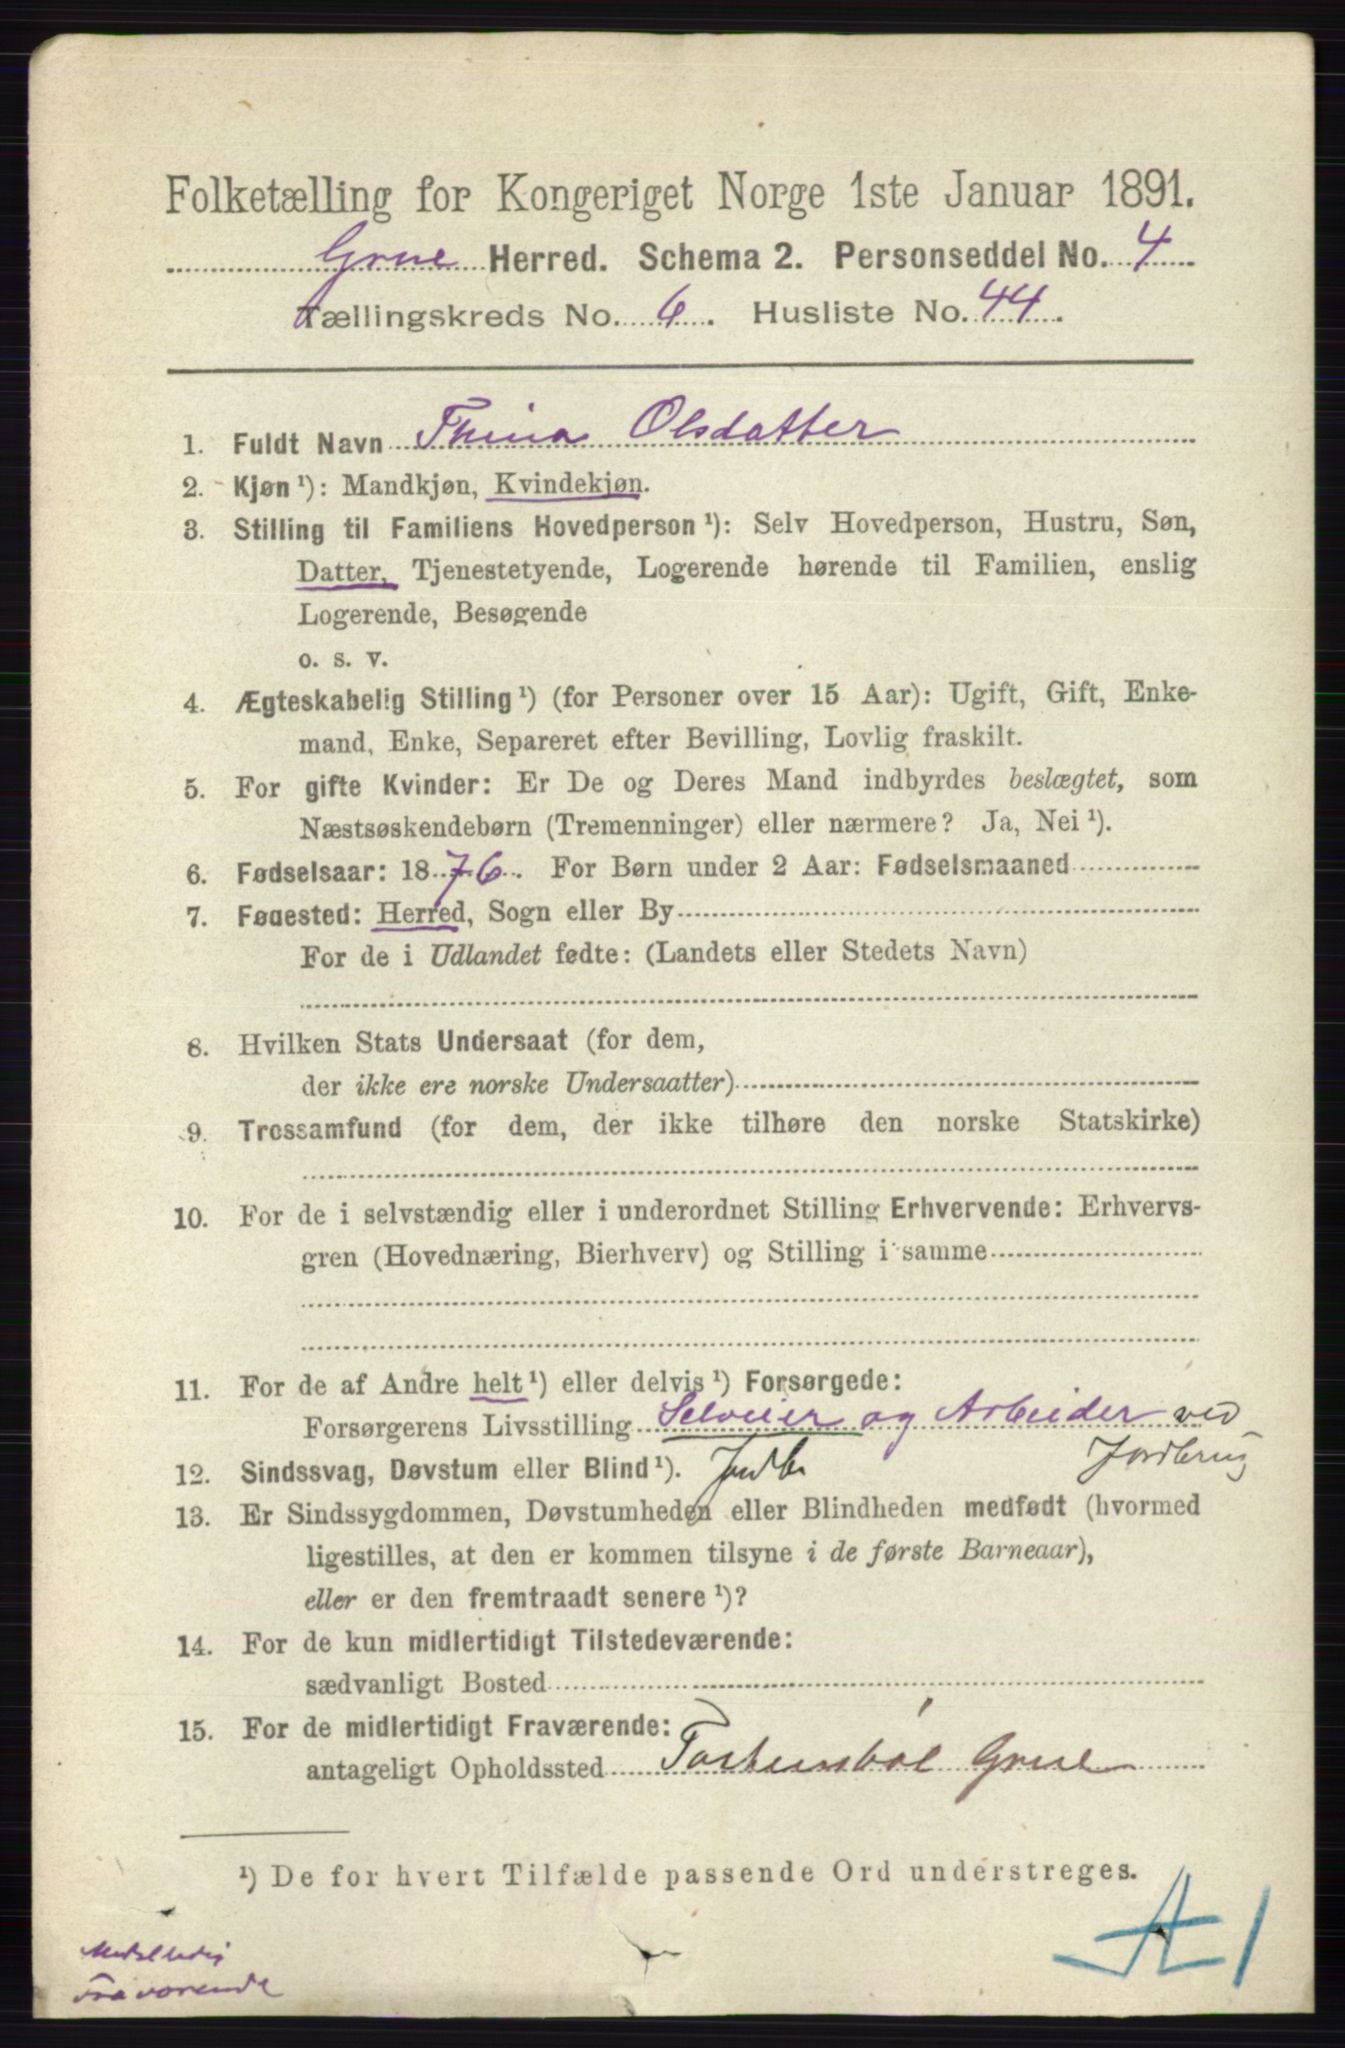 Folketælling for Kongeriget Norge 1ste Januar 1891.
Grue Herred. Schema 2. Personseddel No. 4
Tællingskreds No. 6. Husliste No. 44.
1. Fuldt Navn Thina Olsdatter
2. Kjøn ¹): Mandkjøn, Kvindekjøn.
3. Stilling til Familiens Hovedperson ¹): Selv Hovedperson, Hustru, Søn,
Datter, Tjenestetyende, Logerende hørende til Familien, enslig
Logerende, Besøgende
o. s. v.
4. Ægteskabelig Stilling ¹) (for Personer over 15 Aar): Ugift, Gift, Enke-
mand, Enke, Separeret efter Bevilling, Lovlig fraskilt.
5. For gifte Kvinder: Er De og Deres Mand indbyrdes beslægtet, som
Næstsøskendebørn (Tremenninger) eller nærmere? Ja, Nei ¹).
6. Fødselsaar: 1876. For Børn under 2 Aar: Fødselsmaaned
7. Fødested: Herred, Sogn eller By
For de i Udlandet fødte: (Landets eller Stedets Navn)
8. Hvilken Stats Undersaat (for dem,
der ikke ere norske Undersaatter)
9. Trossamfund (for dem, der ikke tilhøre den norske Statskirke)
10. For de i selvstændig eller i underordnet Stilling Erhvervende: Erhvervs-
gren (Hovednæring, Bierhverv) og Stilling i samme
11. For de af Andre helt ¹) eller delvis ¹) Forsørgede:
Forsørgerens Livsstilling Selveier og Arbeider ved
Jordbrug
12. Sindssvag, Døvstum eller Blind ¹). Jordbr
13. Er Sindssygdommen, Døvstumheden eller Blindheden medfødt (hvormed
ligestilles, at den er kommen tilsyne i de første Barneaar),
eller er den fremtraadt senere ¹)?
14. For de kun midlertidigt Tilstedeværende:
sædvanligt Bosted
15. For de midlertidigt Fraværende:
antageligt Opholdssted Grue
¹) De for hvert Tilfælde passende Ord understreges.
A 1
Fraværende